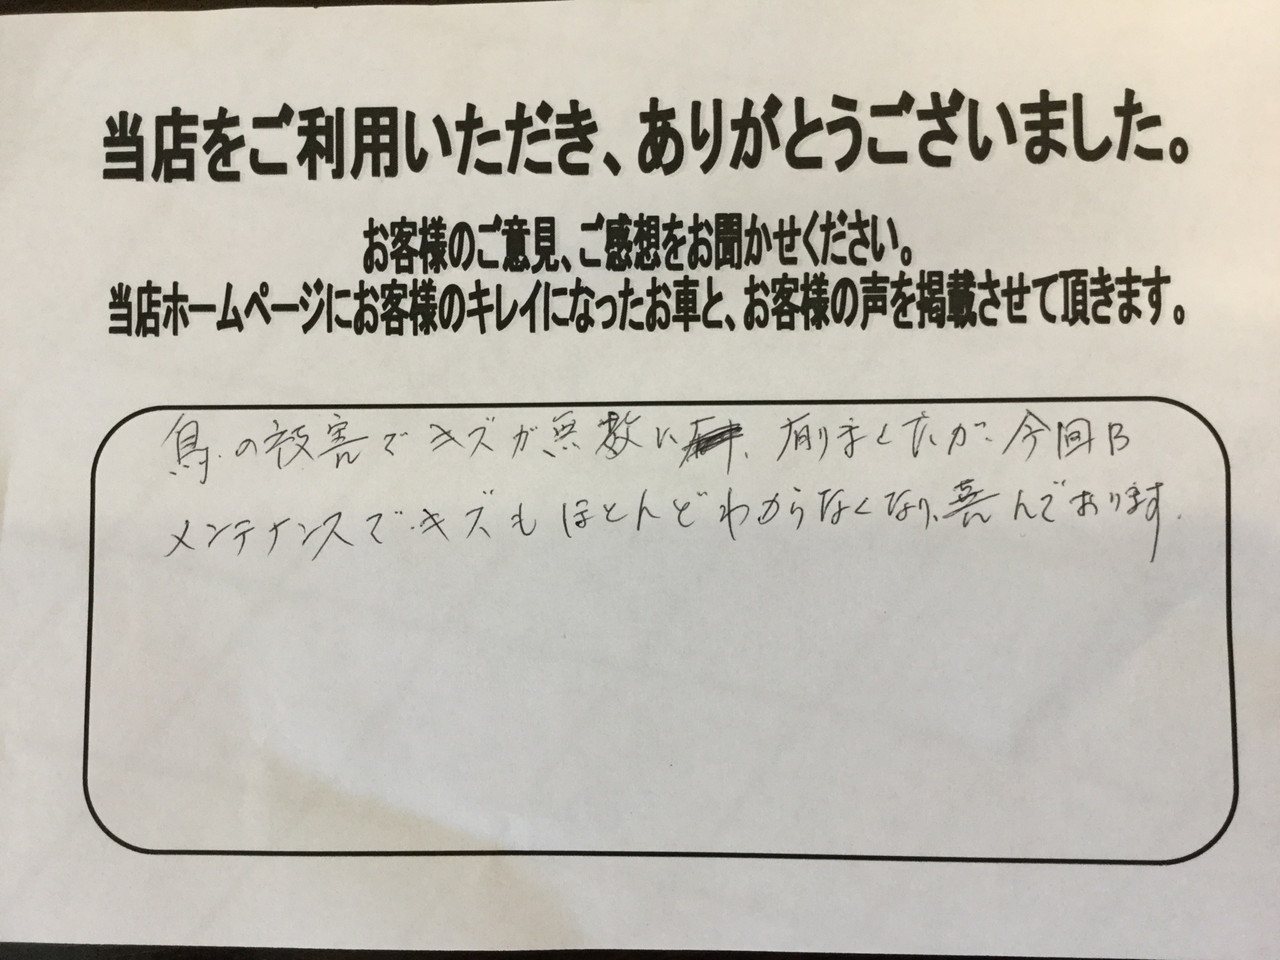 当店をご利用いただき、ありがとうございました。
お客様のご意見、ご感想をお聞かせください。
当店ホームページにお客様のキレイになったお車と、お客様の声を掲載させて頂きます。
鳥の被害でキズが無数に、有りましたが、今回B
メンテナンスでキズもほとんどわからなくなり、喜んでおります。